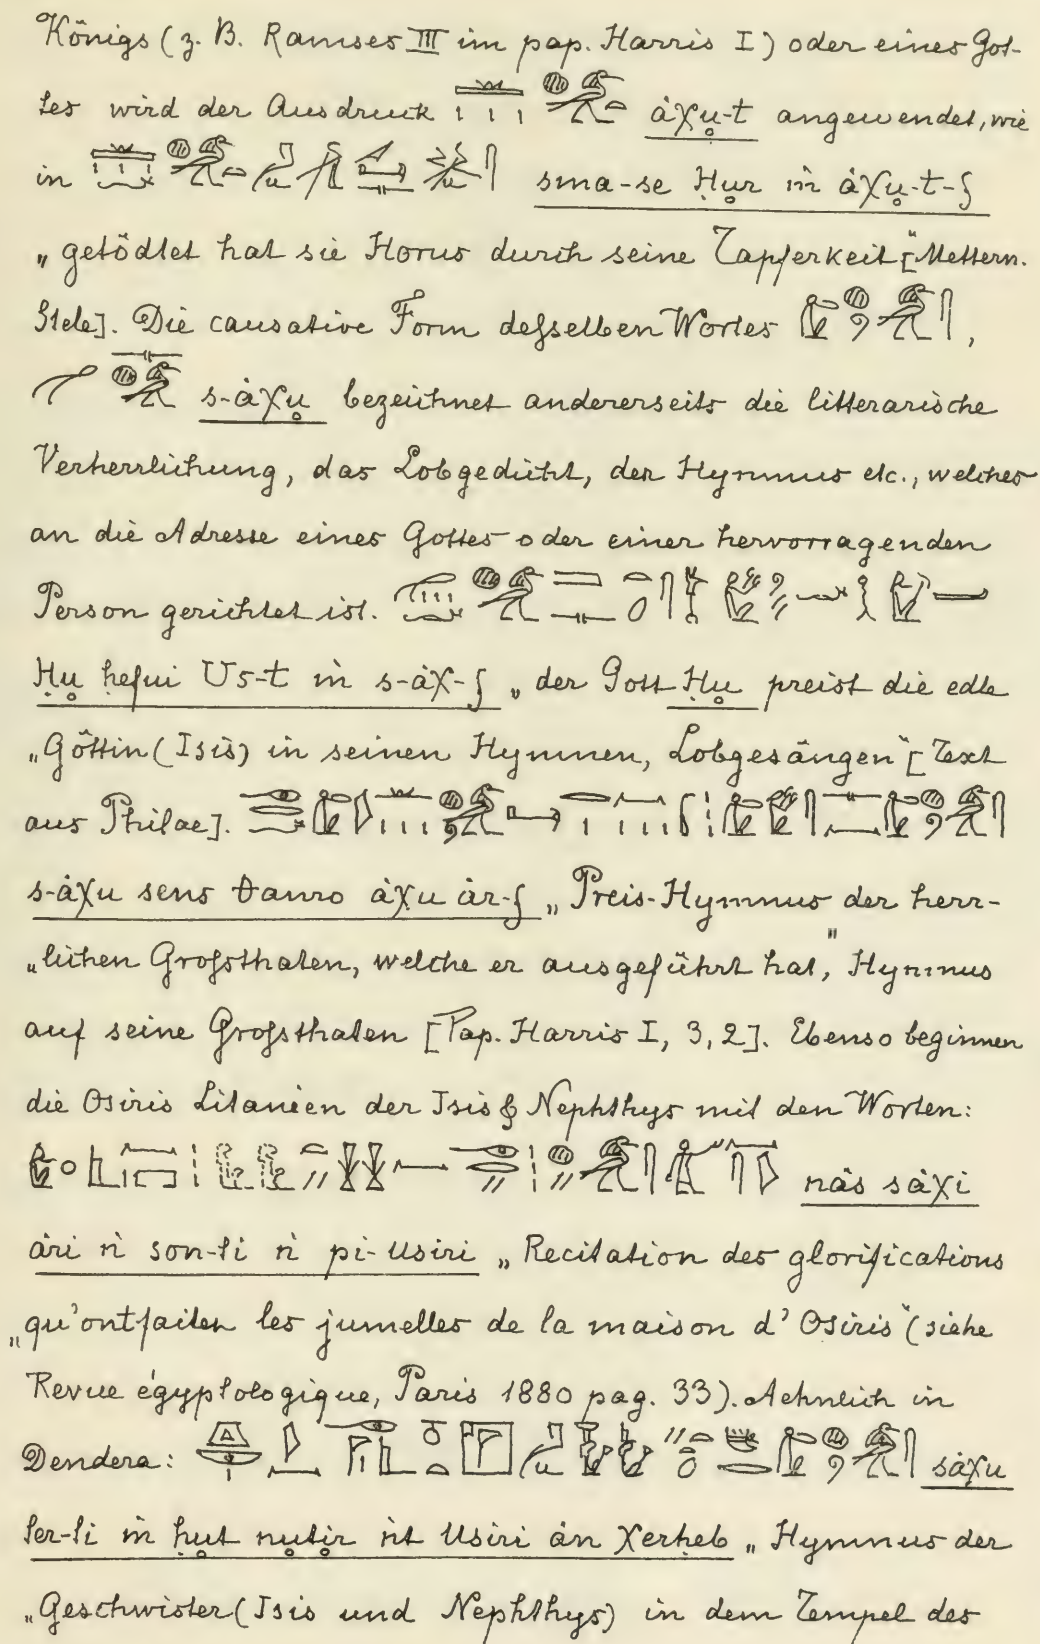 Königs (z. B. Ramses III im pap. Harris I) oder eines Got-
tes wird der Ausdruck ȧχụ-t angewendet, wie
in sma-se Ḥụr ṁ ȧχụ-t-f
„getödtet hat sie Horus durch seine Tapferkeit“ [Mettern.
Stele]. Die causative Form desselben Wortes ,
s-ȧχụ bezeichnet andererseits die litterarische
Verherrlichung, das Lobgedicht, den Hymnus etc., welches
an die Adresse eines Gottes oder einer hervorragenden
Person gerichtet ist.
Ḥụ ḥefui Us-t ṁ s-ȧχ-f „der Gott Ḥụ preist die edle
„Göttin (Isis) in seinen Hymnen, Lobgesängen“ [Text
aus Philae].
s-ȧχu sens ṯanro ȧχu ȧr-f „Preis-Hymnus der herr-
„lichen Grofsthaten, welche er ausgeführt hat“, Hymnus
auf seine Grofsthaten [Pap. Harris I, 3, 2]. Ebenso beginnen
die Osiris Litanieen der Isis & Nephthys mit den Worten:
nȧs sȧχi
ȧri ṅ son-ti ṅ pi-Usiri „Recitation des glorifications
„qu'ont faites les jumelles de la maison d'Osiris“ (siehe
Revue égyptologique, Paris 1880 pag. 33). Aehnlich in
Dendera: sȧχu
ter-ti ṁ ḥụt nụtịr ṅt Usiri ȧn χerḥeb „Hymnus der
„Geschwister (Isis und Nephthys) in dem Tempel des